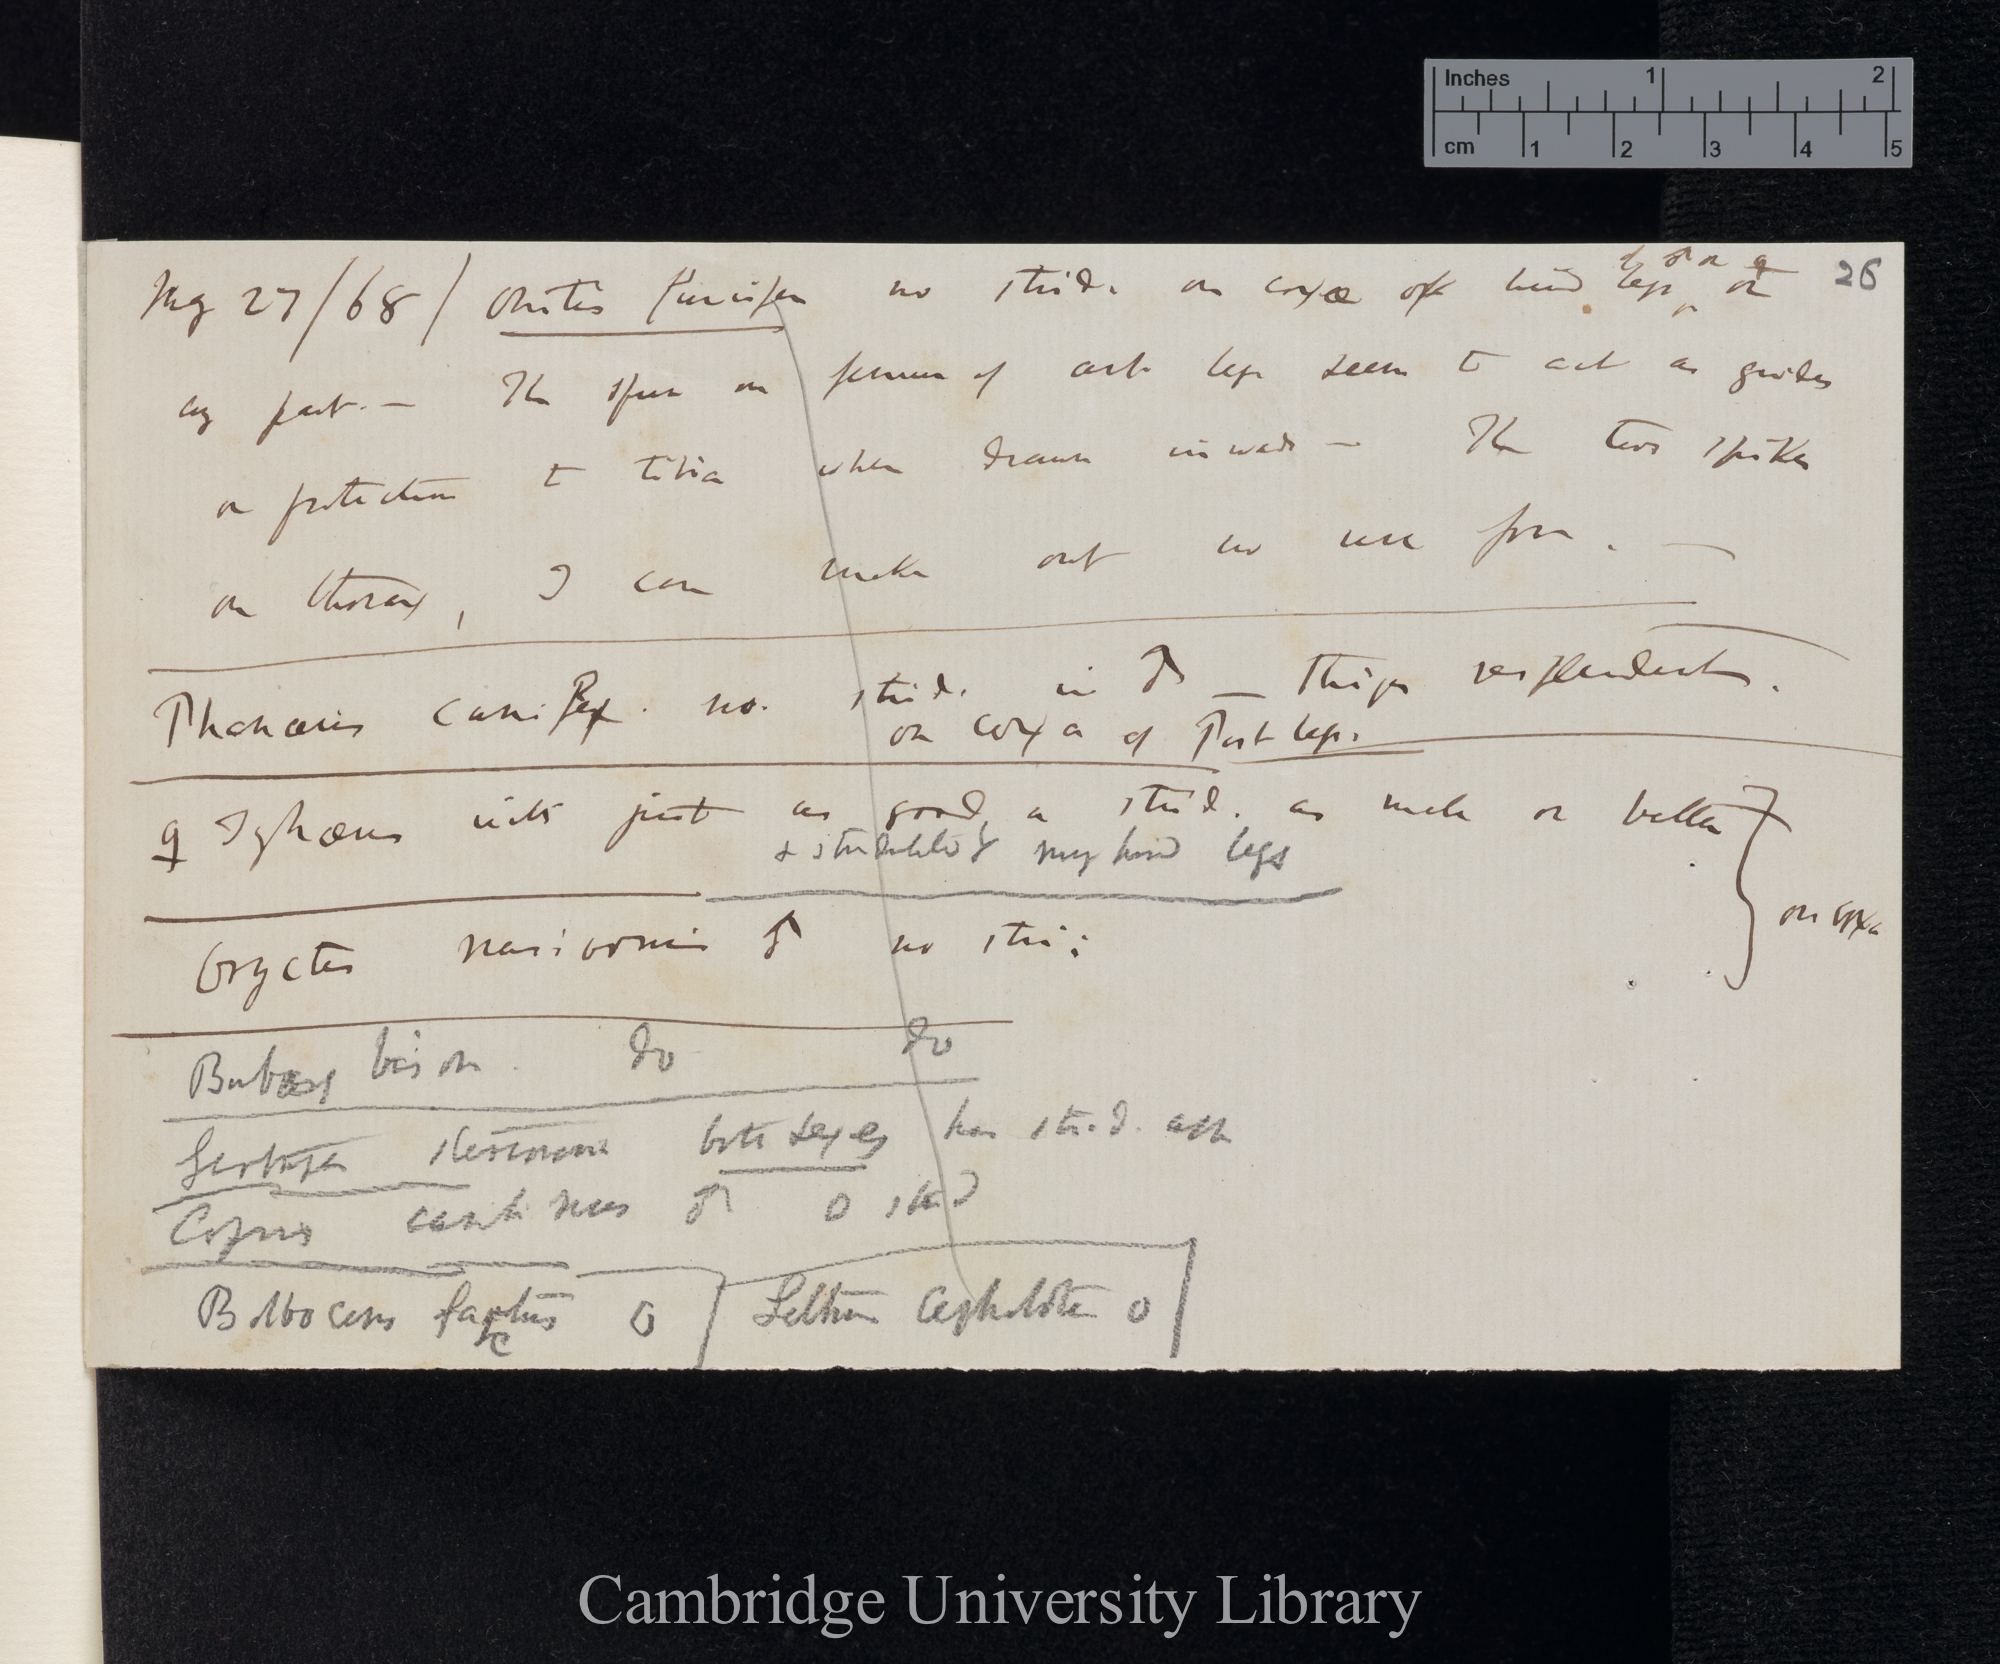 Inches 1 2
cm 1 2 3 4 5
26
♂ or ♀
May 27/68/ Onitis furcifer no strid. on coxæ of hind legs, or
any part. — The spur on femur of ant. legs seem to act as guides
or protection to tibia when drawn inwards — The two spikes
on thorax, I can make out no use for. —
Phanæus carnifex. no. strid. in ♂ — things resplendent.
on coxa of Post legs.
♀ Typhæus with just as good a strid. as male or better
+ stridulated moving hind legs
on coxa
Oryctes nasicornis ♂ no stri:
Bubas bison. do do
both sexes has strid. app
Copris ♂ 0 strid
Bolboceras 0
Lethrus Cephalotes 0
Cambridge University Library